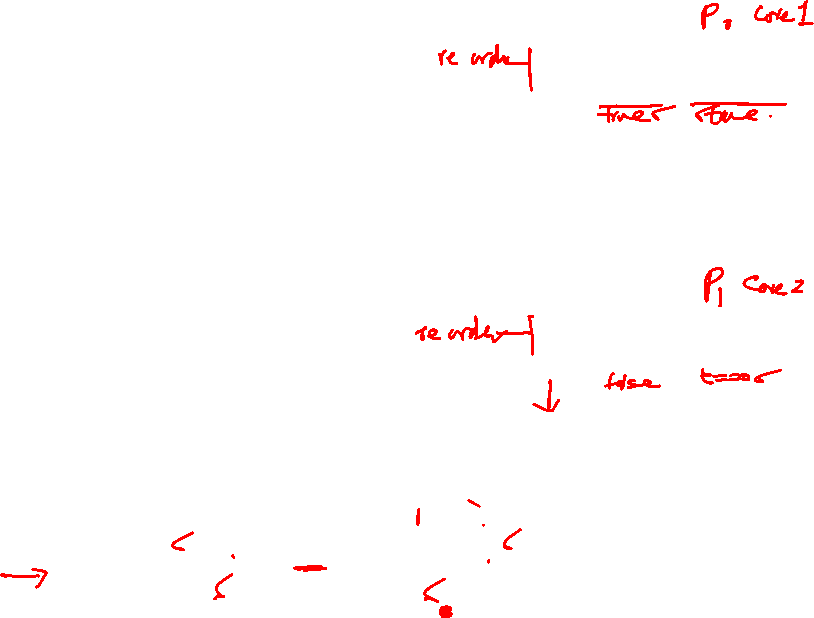 P0 Core1
re order
true true.
P1 Core2
re order
false